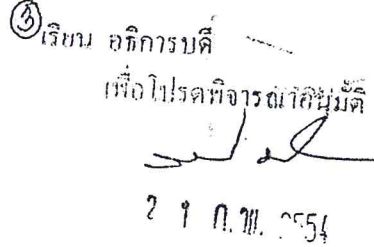 ③เรียน อธิการบดี
เพื่อโปรดพิจารณาอนุมัติ
2 1 ก.พ. 2554